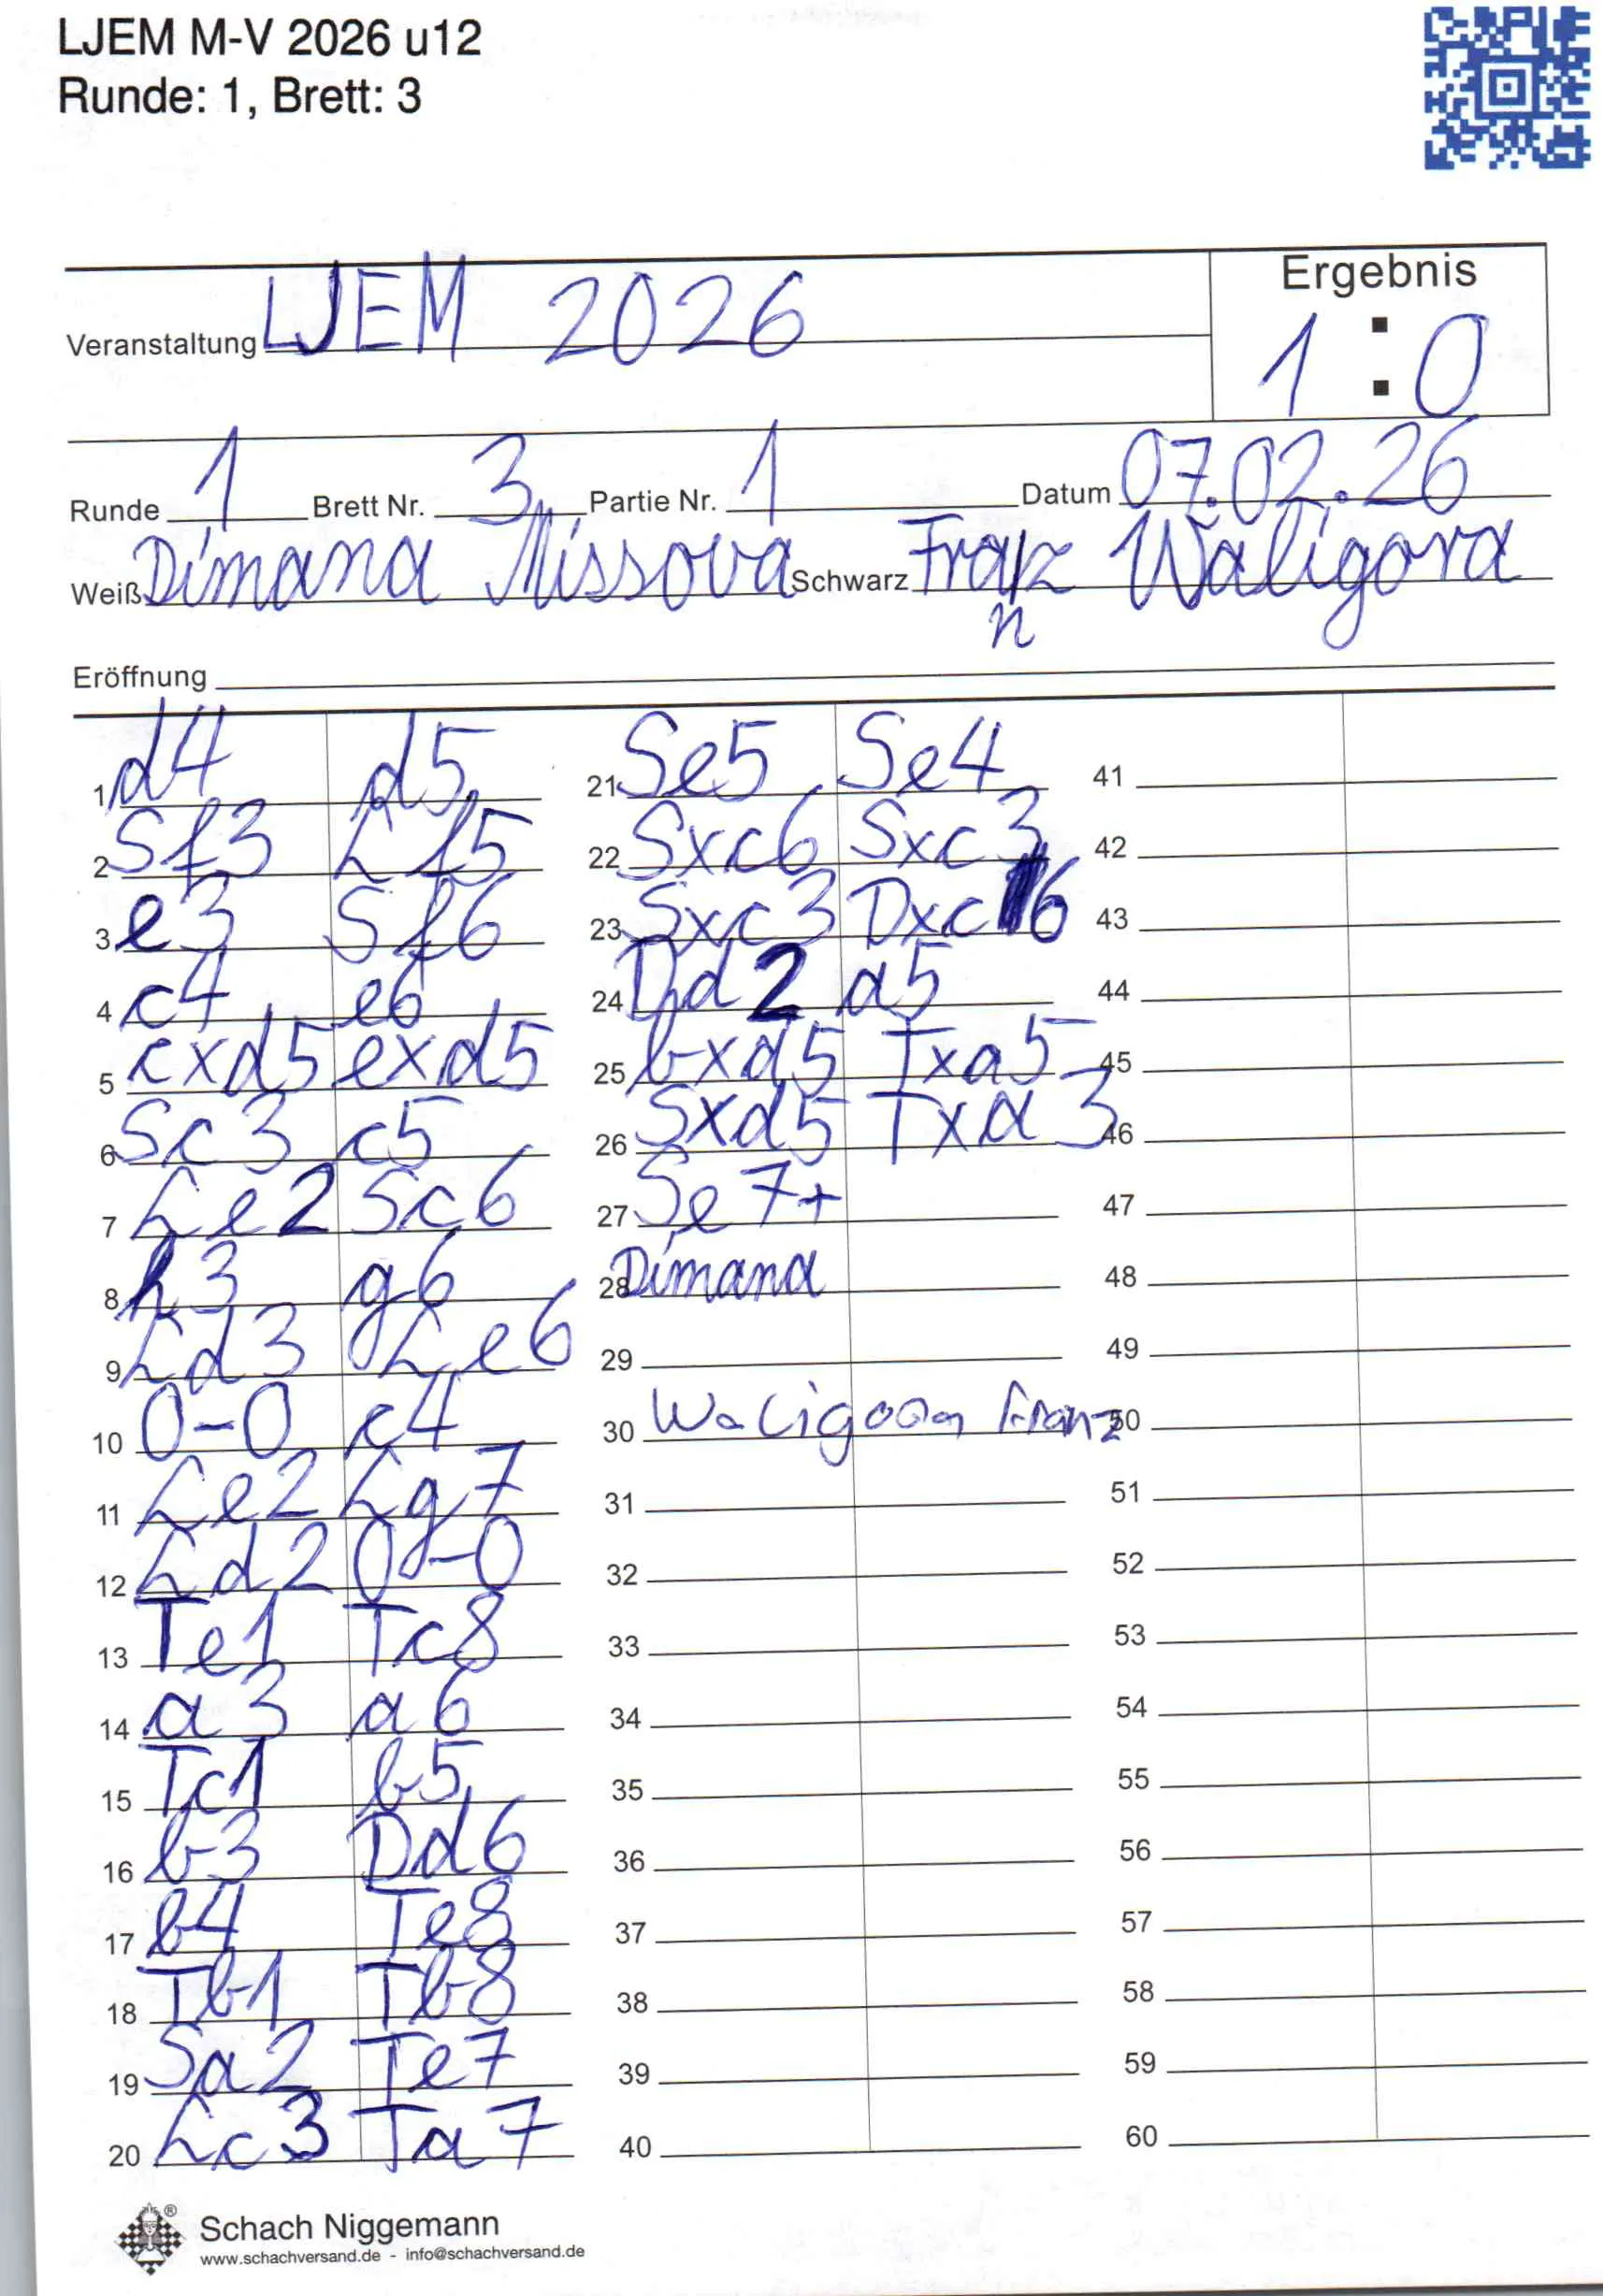 LJEM M-V 2026 u12
Runde: 1, Brett: 3
Ergebnis
Veranstaltung LJEM 2026
1 : 0
Runde 1 Brett Nr. 3 Partie Nr. 1 Datum 07.02.26
Weiß Dimana Missova Schwarz Franz Waligora
n
Eröffnung
1 d4 d5
2 Sf3 Lf5
3 e3 Sf6
4 c4 e6
5 cxd5 exd5
6 Sc3 c5
7 Le2 Sc6
8 h3 g6
9 Ld3 Le6
10 0-0 c4
11 Le2 Lg7
12 Ld2 0-0
13 Te1 Tc8
14 a3 a6
15 Tc1 b5
16 b3 Dd6
17 b4 Te8
18 Tb1 Tb8
19 Sa2 Te7
20 Lc3 Ta7
21 Se5 Se4
22 Sxc6 Sxc3
23 Sxc3 Dxc6
24 Dd2 a5
25 bxd5 Txa5
26 Sxd5 Txa3
27 Se7+
28 Dimana
29
30 Waligora Franz
31
32
33
34
35
36
37
38
39
40
41
42
43
44
45
46
47
48
49
50
51
52
53
54
55
56
57
58
59
60
Schach Niggemann
www.schachversand.de - info@schachversand.de